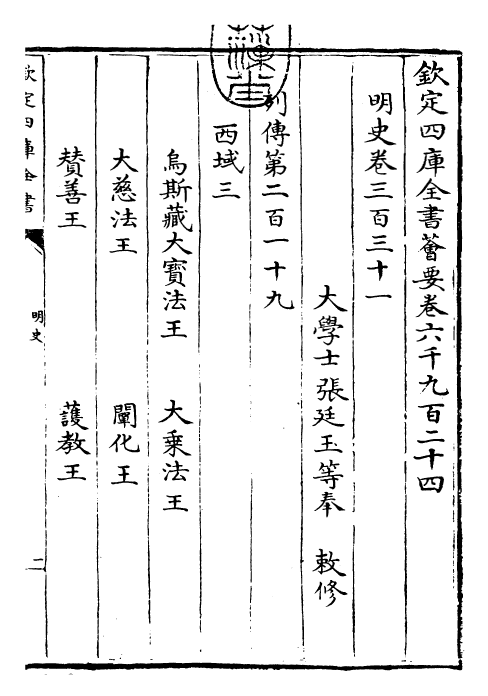 欽定四庫全書薈要卷六千九百二十四
明史卷三百三十一
大學士張廷玉等奉 敕修
列傳第二百一十九
西域三
烏斯藏大寶法王 大乗法王
大慈法王 闡化王
賛善王 護教王
欽定四庫全書
明史
二